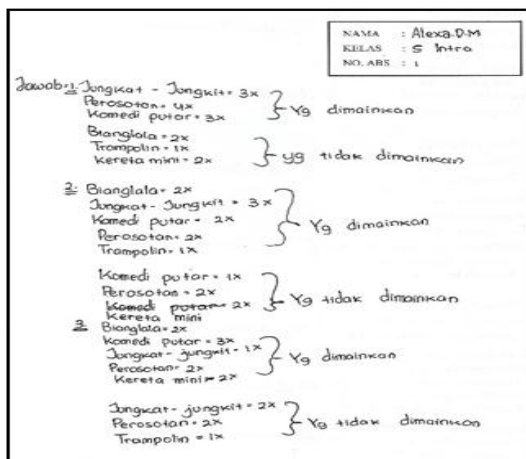 NAMA : Alexa.D.M
KELAS : 5 Intra
NO. ABS : 1
Jawab=1. Jungkat - Jungkit = 3x
Perosotan = 4x
Komedi putar = 3x
} Yg dimainkan
Bianglala = 2x
Trampolin = 1x
Kereta mini = 2x
} yg tidak dimainkan
2. Bianglala = 2x
Jungkat - Jungkit = 3x
Komedi putar = 2x
Perosotan = 2x
Trampolin = 1x
} Yg dimainkan
Komedi putar = 1x
Perosotan = 2x
Komedi putar = 2x
Kereta mini
} Yg tidak dimainkan
3. Bianglala = 2x
Komedi putar = 3x
Jungkat - jungkit = 1x
Perosotan = 2x
Kereta mini = 2x
} Yg dimainkan
Jungkat - jungkit = 2x
Perosotan = 2x
Trampolin = 1x
} Yg tidak dimainkan